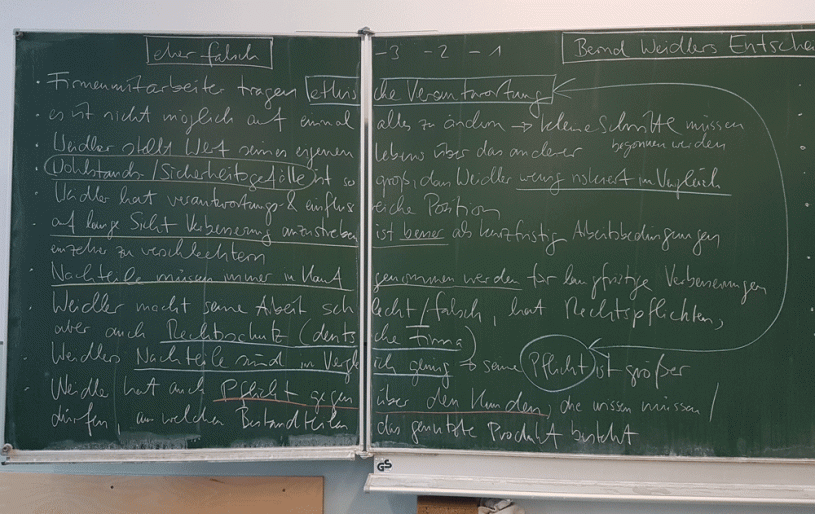 eher falsch -3 -2 -1 Bernd Weidlers Entschei
· Firmenmitarbeiter tragen ethische Verantwortung
· es ist nicht möglich auf einmal alles zu ändern → kleine Schritte müssen
begonnen werden
· Weidler stellt Wert seines eigenen Lebens über das anderer
· Wohlstands-/Sicherheitsgefälle ist so groß, dass Weidler wenig riskiert im Vergleich
· Weidler hat verantwortungs- & einflussreiche Position
· auf lange Sicht Verbesserung anzustreben ist besser als kurzfristig Arbeitsbedingungen
einzelner zu verschlechtern
· Nachteile müssen immer in Kauf genommen werden für langfristige Verbesserungen
· Weidler macht seine Arbeit schlecht/falsch, hat Rechtspflichten,
aber auch Rechtsschutz (deutsche Firma)
· Weidlers Nachteile sind im Vergleich gering → seine Pflicht ist größer
· Weidler hat auch Pflicht gegenüber den Kunden, die wissen müssen/
dürfen, aus welchen Bestandteilen das genutzte Produkt besteht
GS